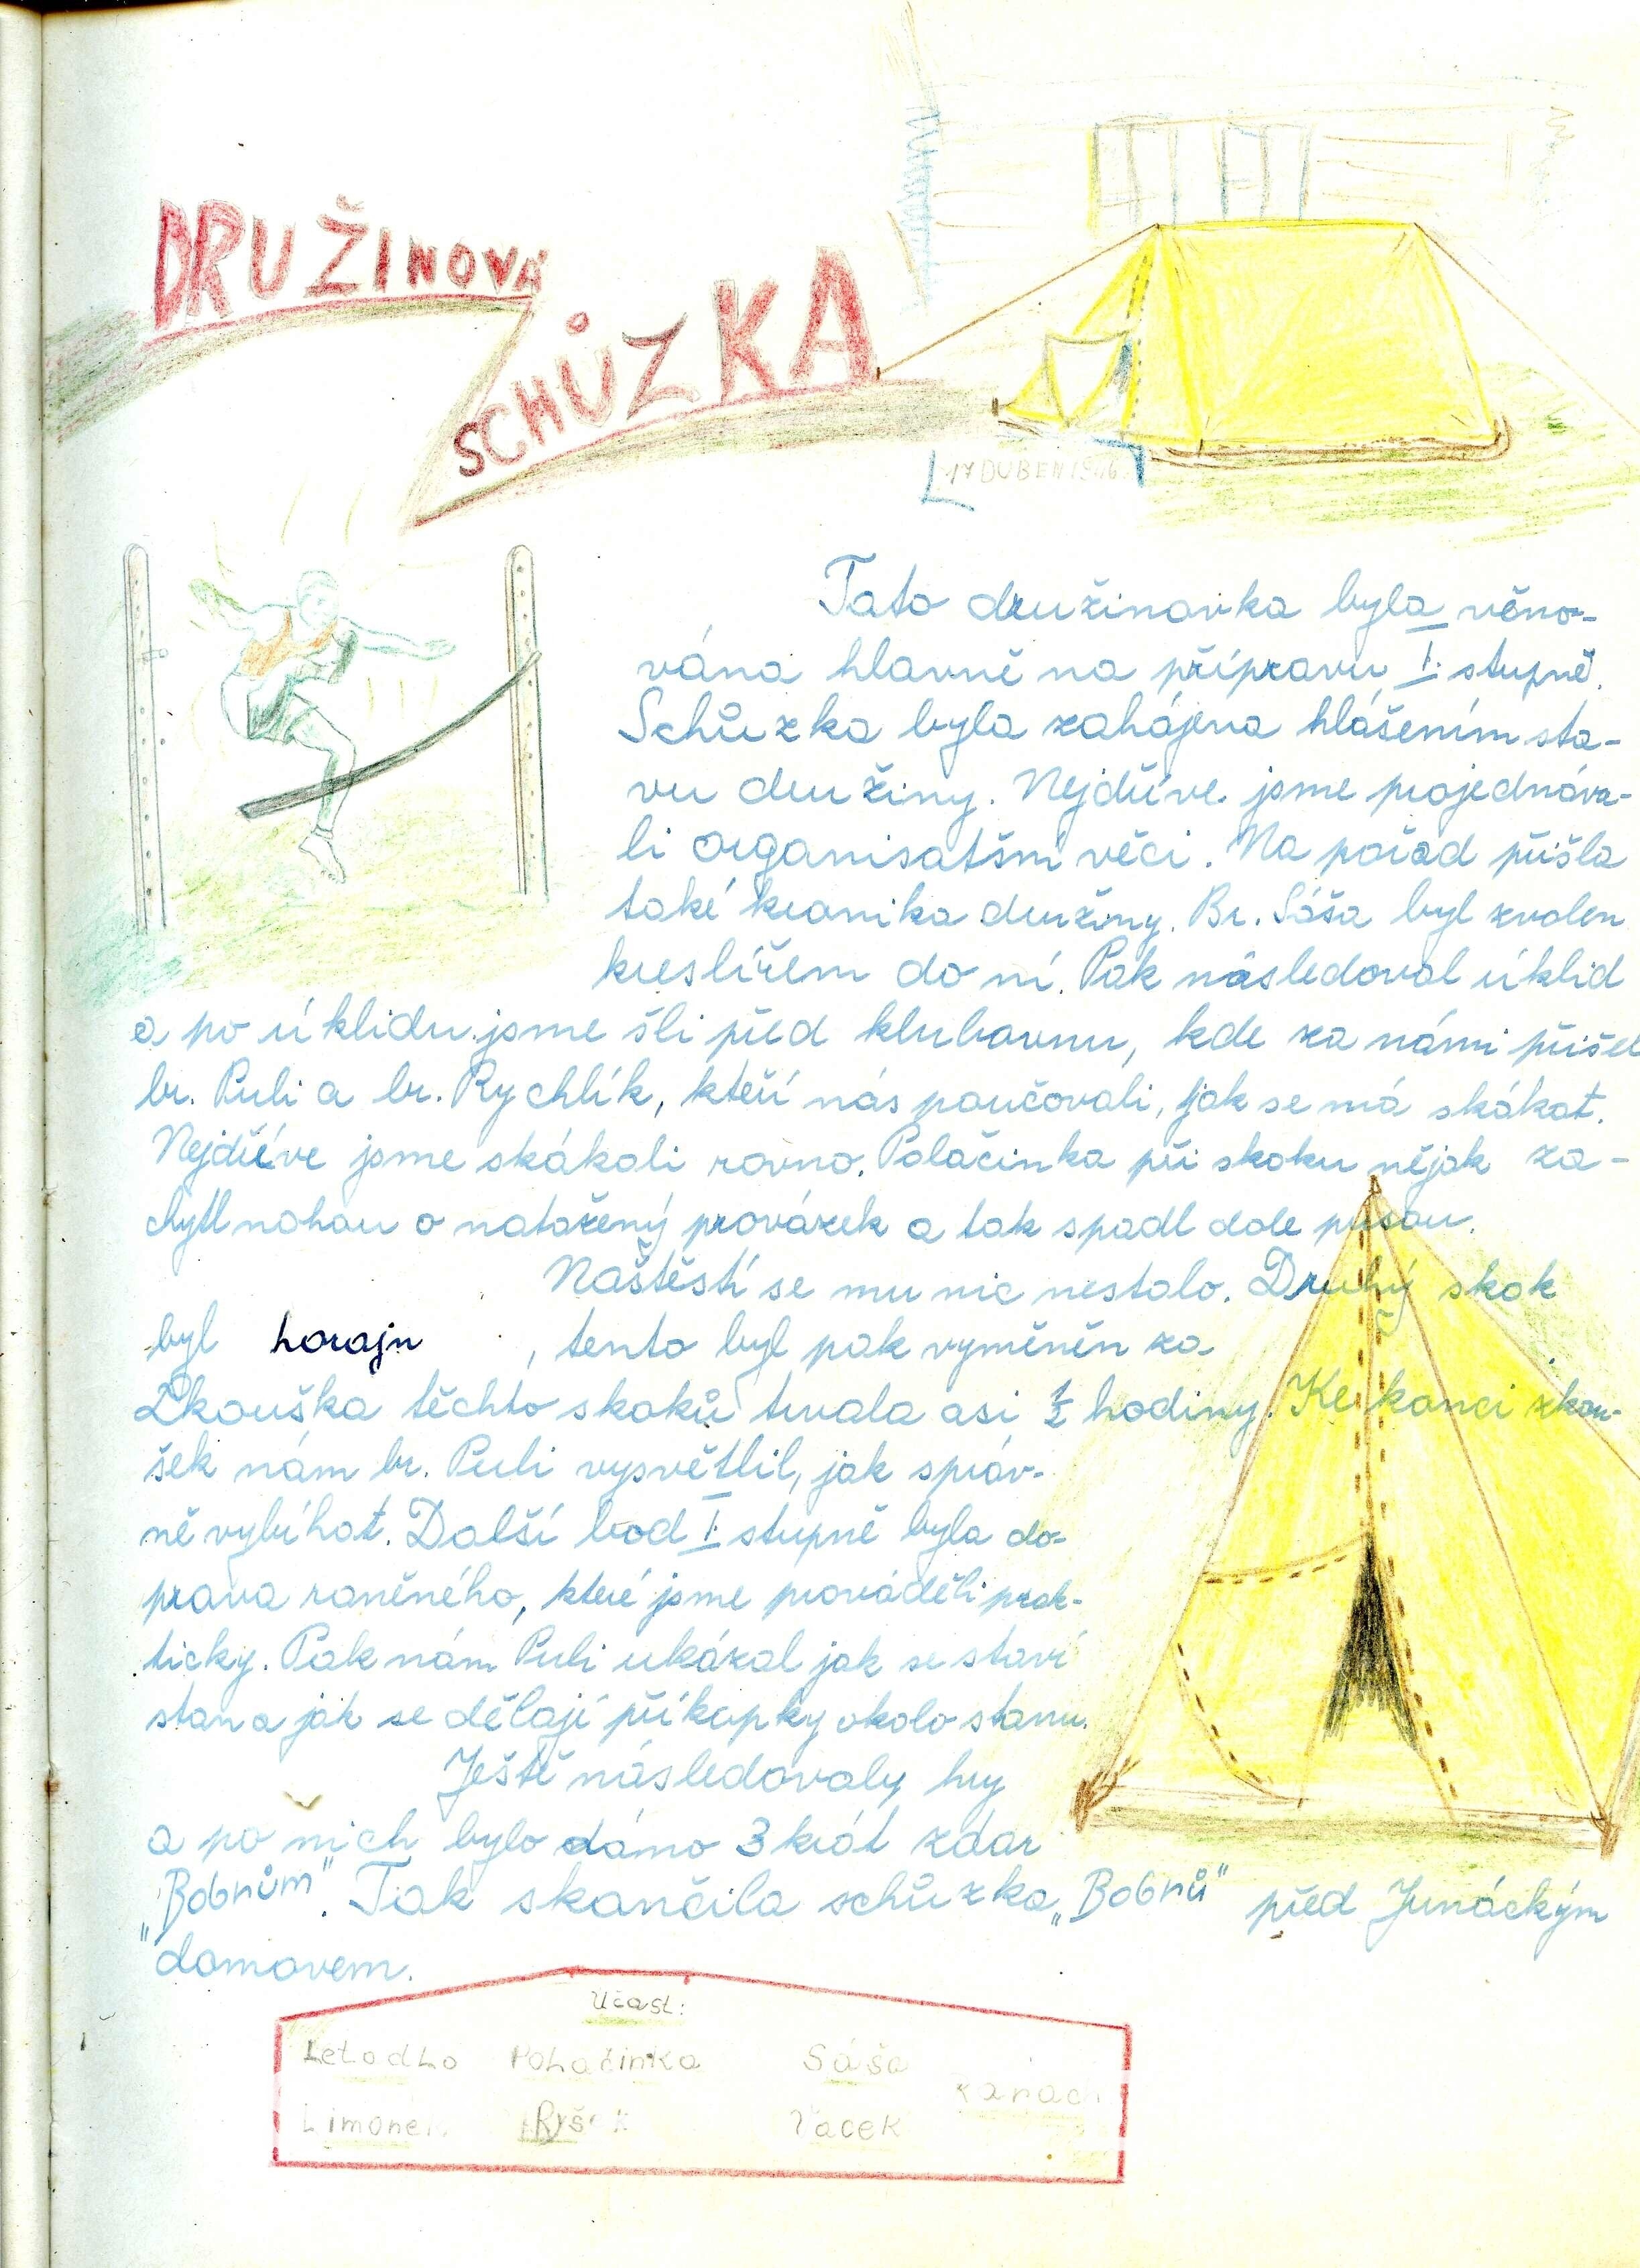 DRUŽINOVÁ
SCHŮZKA
17 DUBEN 1946
Tato družinovka byla věno-
vána hlavně na přípravu I. stupně.
Schůzka byla zahájena hlášením sta-
vu družiny. Nejdříve jsme projednáva-
li organisatšní věci. Na pořad přišla
také kronika družiny. Br. Sáša byl zvolen
kreslířem do ní. Pak následoval úklid
a po úklidu jsme šli před klubovnu, kde za námi přišel
br. Puli a br. Rychlík, kteří nás poučovali, jak se má skákat.
Nejdříve jsme skákali rovno. Polačinka při skoku nějak za-
chytl nohou o natažený provázek a tak spadl dole pusou.
Naštěstí se mu nic nestalo. Druhý skok
byl horajn, tento byl pak vyměněn za
Zkouška těchto skoků trvala asi ½ hodiny. Ke konci zkou-
šek nám br. Puli vysvětlil, jak správ-
ně vybíhat. Další bod I. stupně byla do-
prava raněného, které jsme prováděli prak-
ticky. Pak nám Puli ukázal jak se staví
stan a jak se dělají příkopky okolo stanu.
Ještě následovaly hry
a po nich bylo dáno 3 krát zdar
„Bobrům". Tak skončila schůzka „Bobrů" před Junáckým
domovem.
Účast:
Letadlo Polačinka Sáša
Limonek Ryšek Vacek